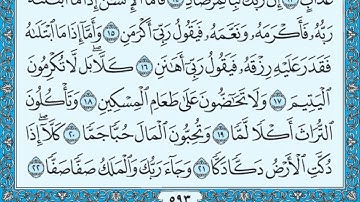 عَذَابٍ ١٣ إِنَّ رَبَّكَ لَبِٱلْمِرْصَادِ ١٤ فَأَمَّا ٱلْإِنسَٰنُ إِذَا مَا ٱبْتَلَىٰهُ
رَبُّهُۥ فَأَكْرَمَهُۥ وَنَعَّمَهُۥ فَيَقُولُ رَبِّىٓ أَكْرَمَنِ ١٥ وَأَمَّآ إِذَا مَا ٱبْتَلَىٰهُ
فَقَدَرَ عَلَيْهِ رِزْقَهُۥ فَيَقُولُ رَبِّىٓ أَهَٰنَنِ ١٦ كَلَّا ۖ بَل لَّا تُكْرِمُونَ
ٱلْيَتِيمَ ١٧ وَلَا تَحَٰٓضُّونَ عَلَىٰ طَعَامِ ٱلْمِسْكِينِ ١٨ وَتَأْكُلُونَ
ٱلتُّرَاثَ أَكْلًا لَّمًّا ١٩ وَتُحِبُّونَ ٱلْمَالَ حُبًّا جَمًّا ٢٠ كَلَّآ ۖ إِذَا
دُكَّتِ ٱلْأَرْضُ دَكًّا دَكًّا ٢١ وَجَآءَ رَبُّكَ وَٱلْمَلَكُ صَفًّا صَفًّا ٢٢
٥٩٣